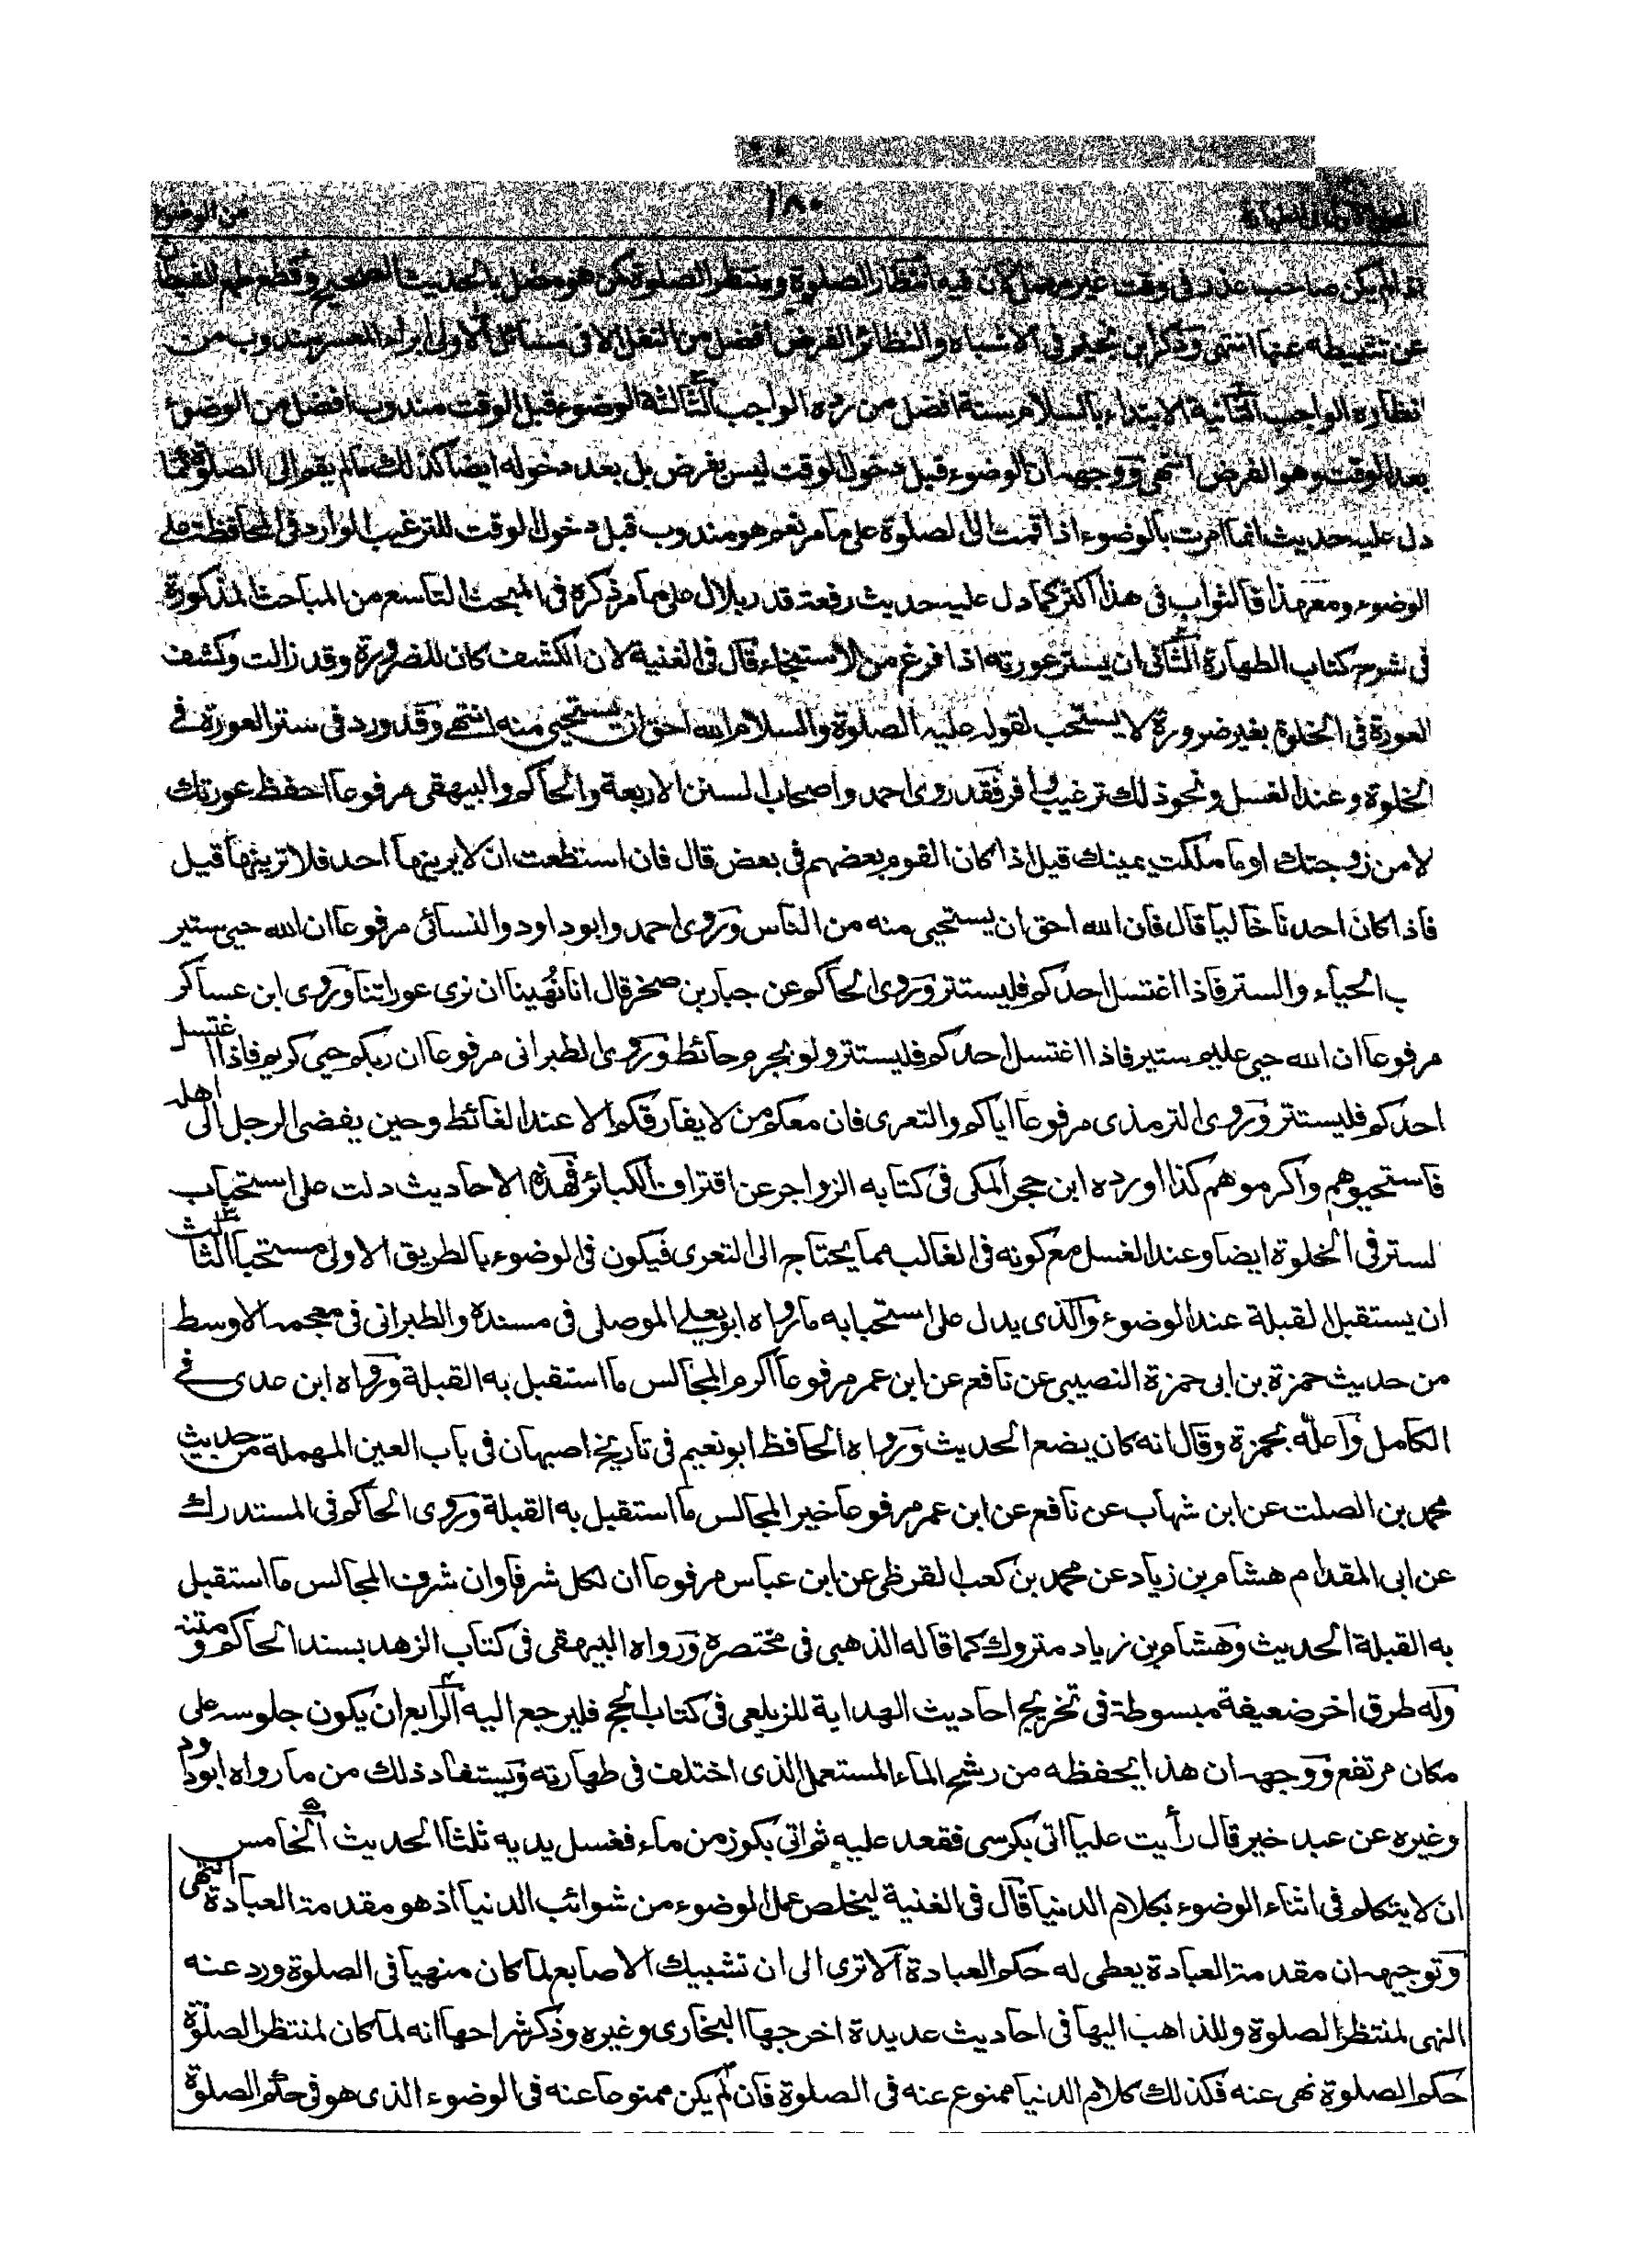 ١٨٠
من الوضوء
لم يكن صاحب عذر فى وقت غير مهمل لان فيه انتظار الصلوة ومنتظر الصلوة كمن هو مصل بالحديث الصحيح وقطع طمع الشيطان
عن تثبيطه عنها انتهى وذكر ابن نجيم فى الاشباه والنظائر الفرض افضل من النفل الا فى مسائل الاولى ابراء المعسر مندوب من
انظاره الواجب الثانية الابتداء بالسلام سنة افضل من رده الواجب الثالثة الوضوء قبل الوقت مندوب افضل من الوضوء
بعد الوقت وهو الفرض انتهى ووجهه ان الوضوء قبل دخول الوقت ليس بفرض بل بعد دخوله ايضا كذلك ما لم يقم الى الصلوة كما
دل عليه حديث انما امرت بالوضوء اذا قمت الى الصلوة على ما مر نعم هو مندوب قبل دخول الوقت للترغيب الوارد فى المحافظة على
الوضوء ومع هذا فالثواب فى هذا اكثر كما دل عليه حديث رفعة قدر بلال على ما مر ذكره فى المبحث التاسع من المباحث المذكورة
فى شرح كتاب الطهارة الثانى ان يستر عورته اذا فرغ من الاستنجاء قال فى الغنية لان الكشف كان للضرورة وقد زالت وكشف
العورة فى الخلوة بغير ضرورة لا يستحب لقوله عليه الصلوة والسلام الله احق ان يستحيى منه انتهى وقد ورد فى ستر العورة فى
الخلوة وعند الغسل ونحو ذلك ترغيب وافر فقد روى احمد واصحاب السنن الاربعة والحاكم والبيهقى مرفوعا احفظ عورتك
لا من زوجتك او ما ملكت يمينك قيل اذا كان القوم بعضهم فى بعض قال فان استطعت ان لا يرينها احد فلا ترينها قيل
فاذا كان احدنا خاليا قال فان الله احق ان يستحيى منه من الناس وروى احمد وابو داود والنسائى مرفوعا ان الله حيى ستير
ب الحياء والستر فاذا اغتسل احدكم فليستتر وروى الحاكم عن جبار بن صخر قال انا نهينا ان نرى عوراتنا وروى ابن عساكر
مرفوعا ان الله حيى عليم ستير فاذا اغتسل احدكم فليستتر ولو بجرم حائط وروى الطبرانى مرفوعا ان ربكم حيى كريم فاذا اغتسل
احدكم فليستتر وروى الترمذى مرفوعا اياكم والتعرى فان معكم من لا يفارقكم الا عند الغائط وحين يفضى الرجل الى اهله
فاستحيوهم واكرموهم كذا اورده ابن حجر المكى فى كتابه الزواجر عن اقتراف الكبائر فهذه الاحاديث دلت على استحباب
لستر فى الخلوة ايضا وعند الغسل مع كونه فى الغالب مما يحتاج الى التعرى فيكون فى الوضوء بالطريق الاولى مستحبا الثالث
ان يستقبل القبلة عند الوضوء والذى يدل على استحبابه ما رواه ابو يعلى الموصلى فى مسنده والطبرانى فى معجمه الاوسط
من حديث حمزة بن ابى حمزة النصيبى عن نافع عن ابن عمر مرفوعا اكرم المجالس ما استقبل به القبلة ورواه ابن عدى فى
الكامل واعله بحمزة وقال انه كان يضع الحديث ورواه الحافظ ابو نعيم فى تاريخ اصبهان فى باب العين المهملة من حديث
محمد بن الصلت عن ابن شهاب عن نافع عن ابن عمر مرفوعا خير المجالس ما استقبل به القبلة وروى الحاكم فى المستدرك
عن ابى المقدام هشام بن زياد عن محمد بن كعب القرظى عن ابن عباس مرفوعا ان لكل شرفا وان شرف المجالس ما استقبل
به القبلة الحديث وهشام بن زياد متروك كما قاله الذهبى فى مختصره ورواه البيهقى فى كتاب الزهد بسند الحاكم ومتنه
وله طرق اخر ضعيفة مبسوطة فى تخريج احاديث الهداية للزيلعى فى كتاب الحج فليرجع اليه الرابع ان يكون جلوسه على
مكان مرتفع ووجهه ان هذا يحفظه من رشح الماء المستعمل الذى اختلف فى طهارته ويستفاد ذلك من ما رواه ابو داود
وغيره عن عبد خير قال رأيت عليا اتى بكرسى فقعد عليه ثم اتى بكوز من ماء فغسل يديه ثلثا الحديث الخامس
ان لا يتكلم فى اثناء الوضوء بكلام الدنيا قال فى الغنية ليخلص عمل الوضوء من شوائب الدنيا اذ هو مقدمة العبادة انتهى
وتوجيهه ان مقدمة العبادة يعطى له حكم العبادة الا ترى الى ان تشبيك الاصابع لما كان منهيا فى الصلوة ورد عنه
النهى لمنتظر الصلوة وللذاهب اليها فى احاديث عديدة اخرجها البخارى وغيره وذكر شراحها انه لما كان لمنتظر الصلوة
حكم الصلوة نهى عنه فكذلك كلام الدنيا ممنوع عنه فى الصلوة فان لم يكن ممنوعا عنه فى الوضوء الذى هو فى حكم الصلوة